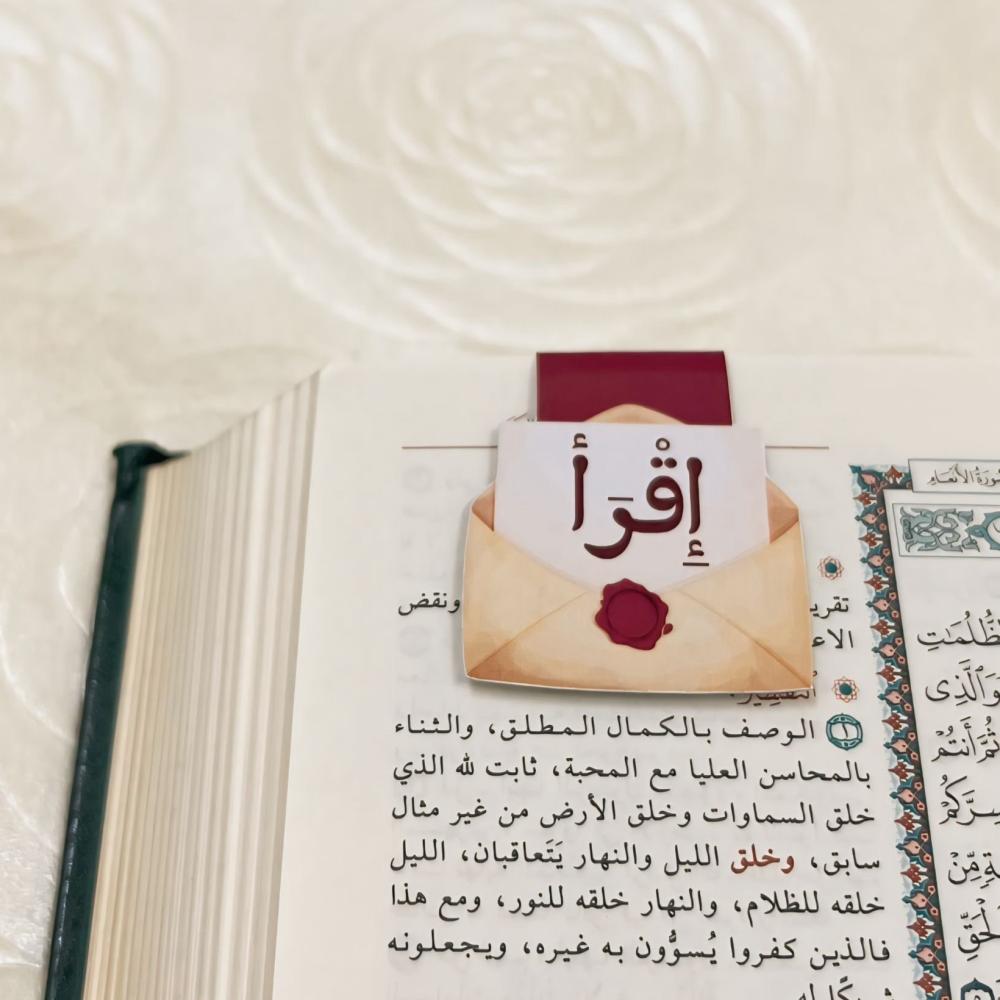 إِقْرَأ
سُورَةُ الأَنْعَامِ
ونقض
الوصف بالكمال المطلق، والثناء
بالمحاسن العليا مع المحبة، ثابت لله الذي
خلق السماوات وخلق الأرض من غير مثال
سابق، وخلق الليل والنهار يَتَعاقبان، الليل
خلقه للظلام، والنهار خلقه للنور، ومع هذا
فالذين كفروا يُسوُّون به غيره، ويجعلونه
وَٱلَّذِى
ثُمَّ أَنتُمْ
سِرَّكُمْ